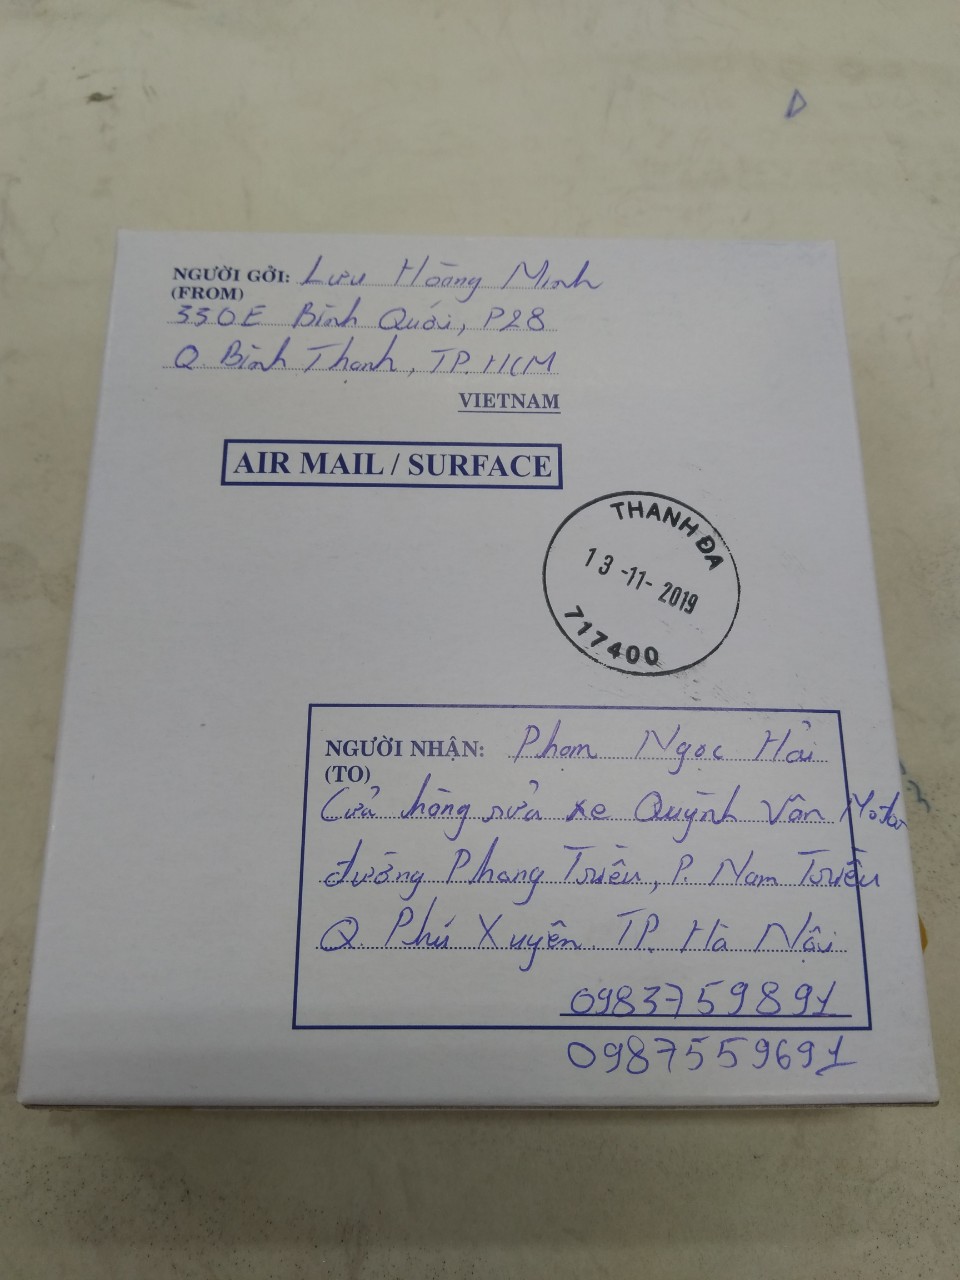 NGƯỜI GỞI: Lưu Hoàng Minh
(FROM)
330E Bình Quới, P28
Q. Bình Thạnh, TP. HCM
VIETNAM
AIR MAIL / SURFACE
THANH ĐA
13-11-2019
717400
NGƯỜI NHẬN: Phạm Ngọc Hải
(TO)
Cửa hàng sửa xe Quỳnh Vân Motor
đường Phang Triều, P. Nam Triều
Q. Phú Xuyên TP. Hà Nội
0983759891
0987559691